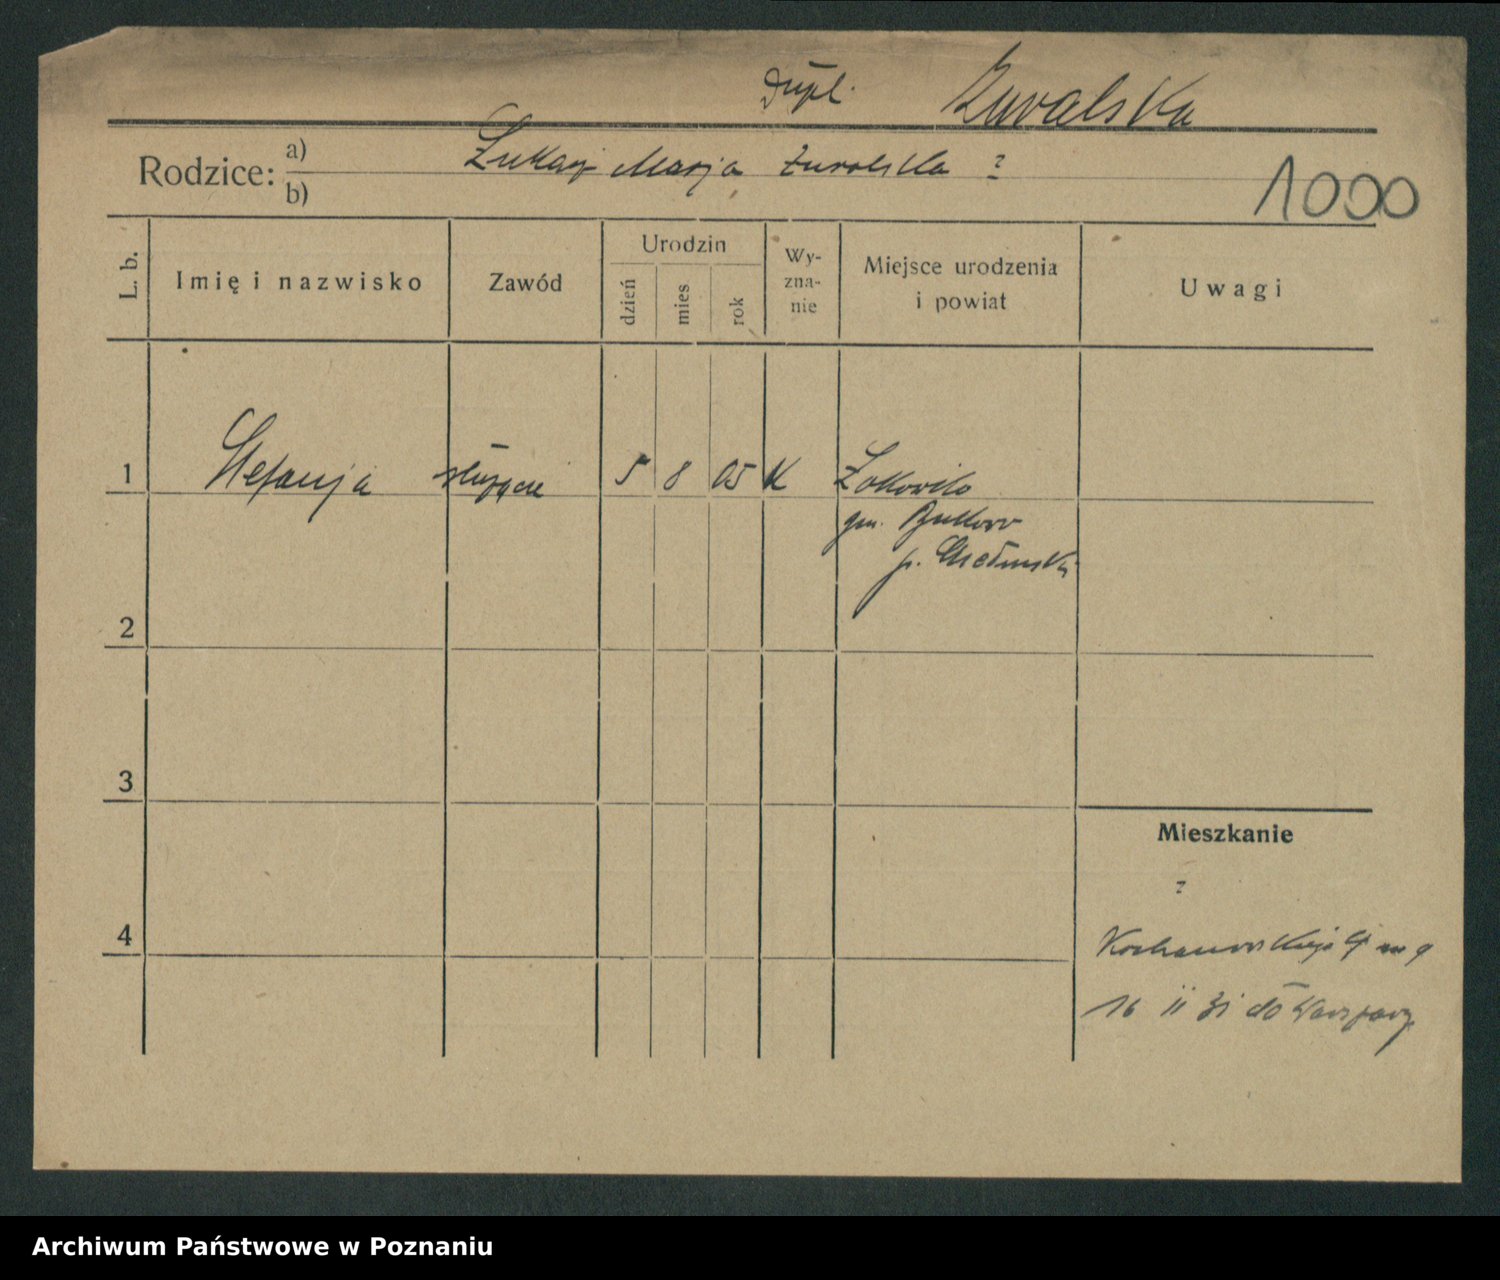 Dupl. Żuralska
Rodzice: a) Łukasz Marja Żuralska ?
b)
1000
L. b. Imię i nazwisko Zawód Urodzin dzień mies rok Wy-zna-nie Miejsce urodzenia i powiat Uwagi
1 Stefanja służąca 5 8 05 K
gm. Bukowo
p.
2
3
Mieszkanie
?
4 Kochanowskiego m 9
16 II 31 do Warszawy
Archiwum Państwowe w Poznaniu